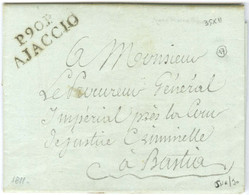 P.90.P.
AJACCIO
9
A Monsieur
Le Procureur Général
Impérial près la Cour
de justice Criminelle
à Bastia
1811.